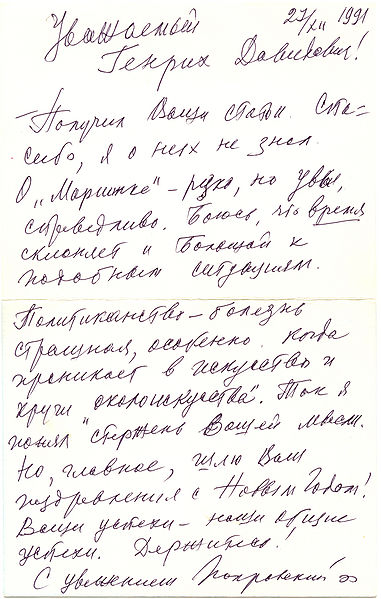 27/XII 1991
Уважаемый
Генрих Давидович!
Получил Ваши статьи. Спа=
сибо, я о них не знал.
О „Маришке" – резко, но увы,
справедливо. Боюсь, что время
склоняет и Большой к
подобным ситуациям.
Политиканство – болезнь
страшная, особенно когда
проникает в искусство и
круги „околоискусства". Так я
понял стержень Вашей мысли.
Но, главное, шлю Вам
поздравления с Новым Годом!
Ваши успехи – наши общие
успехи. Держитесь!
С уважением Покровский